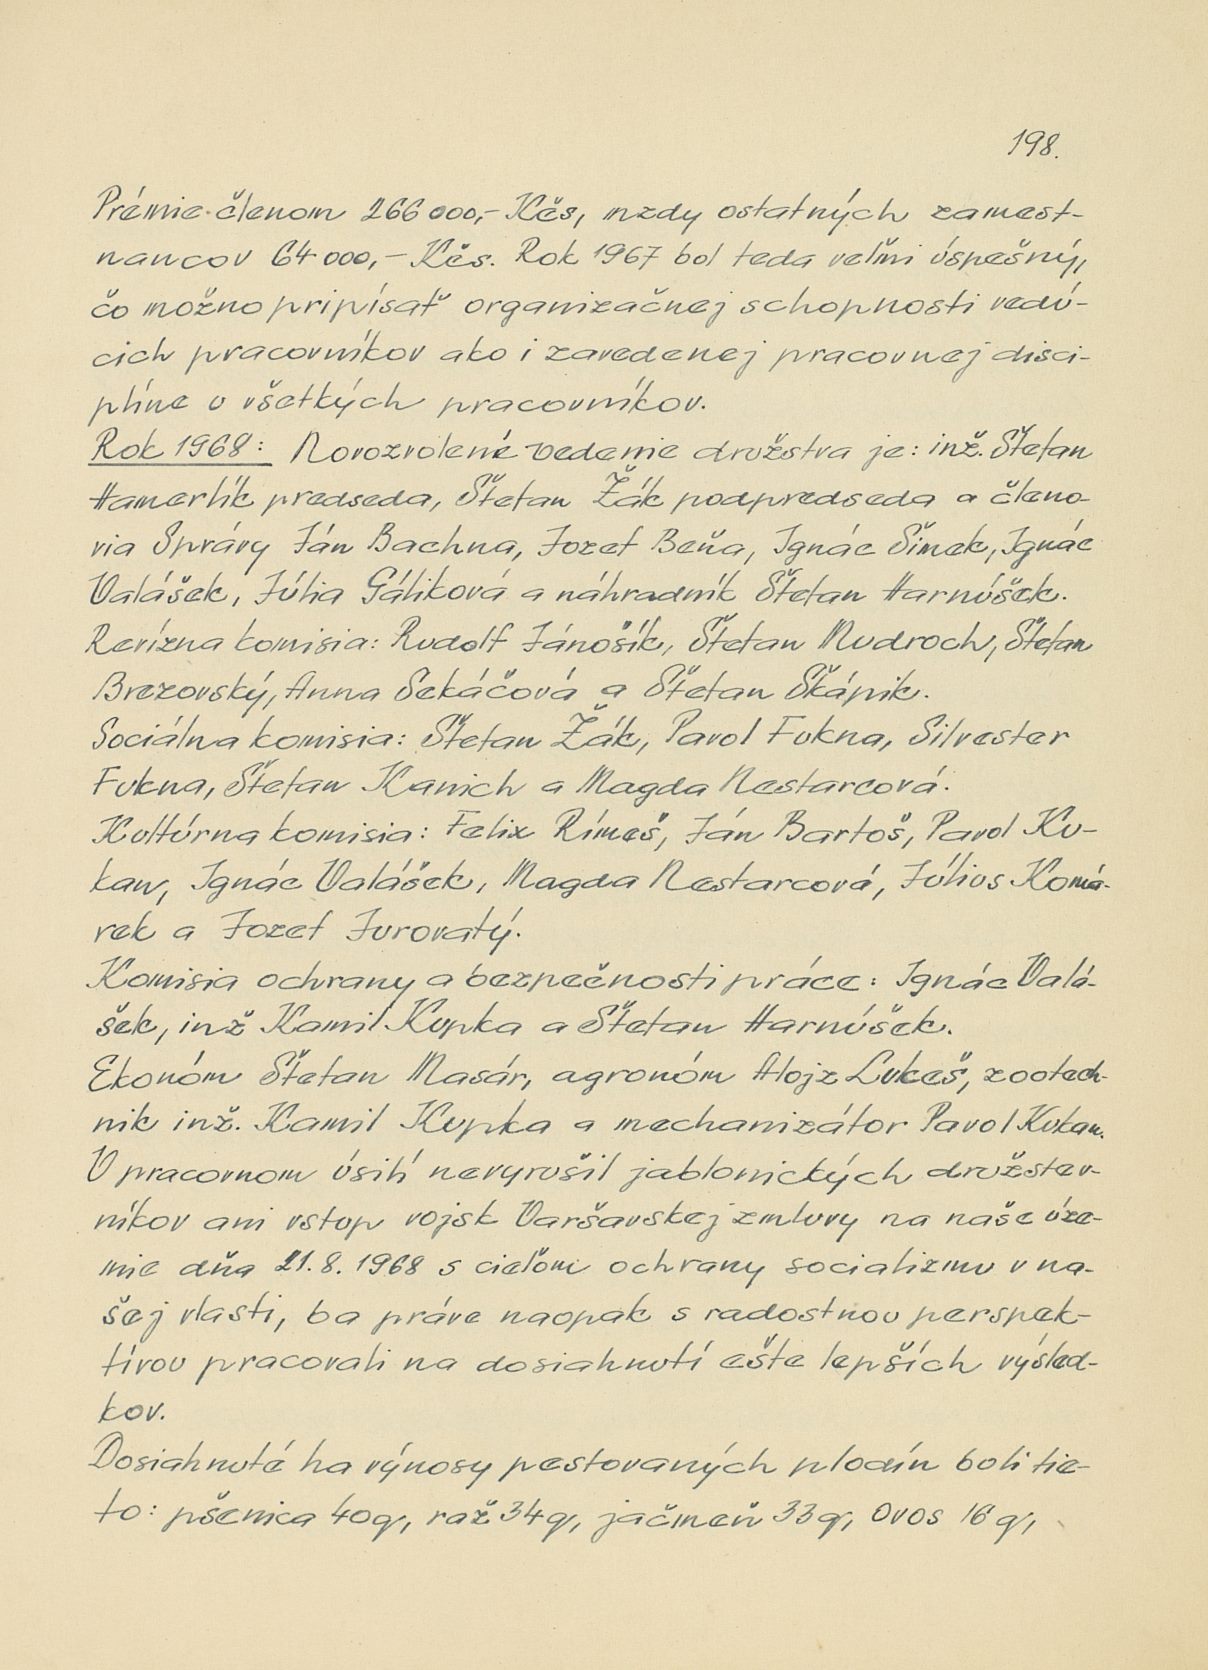 198.
Prémie členom 266 000,- Kčs, mzdy ostatných zamest-
nancov 64 000,- Kčs. Rok 1967 bol teda veľmi úspešný,
čo možno pripísať organizačnej schopnosti vedú-
cich pracovníkov ako i zavedenej pracovnej disci-
plíne u všetkých pracovníkov.
Rok 1968: Novozvolené vedenie družstva je: inž. Štefan
Hamerlík predseda, Štefan Žák podpredseda a členo-
via Správy Ján Bachna, Jozef Beňa, Ignác Šimek, Ignác
Valášek, Júlia Gáliková a náhradník Štefan Harnúšek.
Revízna komisia: Rudolf Jánošík, Štefan Mudroch, Štefan
Brezovský, Anna Sekáčová a Štefan Škápik.
Sociálna komisia: Štefan Žák, Pavol Fukna, Silvester
Fukna, Štefan Kanich a Magda Nestarcová.
Kultúrna komisia: Felix Rímeš, Ján Bartoš, Pavol Ku-
kan, Ignác Valášek, Magda Nestarcová, Július Komá-
rek a Jozef Jurovatý.
Komisia ochrany a bezpečnosti práce: Ignác Valá-
šek, inž Kamil Kupka a Štefan Harnúšek.
Ekonóm Štefan Masár, agronóm Alojz Lukeš, zootech-
nik inž. Kamil Kupka a mechanizátor Pavol Kukan.
V pracovnom úsilí nevyrušil jablonických družstev-
níkov ani vstup vojsk Varšavskej zmluvy na naše úze-
mie dňa 21.8.1968 s cieľom ochrany socializmu v na-
šej vlasti, ba práve naopak s radostnou perspek-
tívou pracovali na dosiahnutí ešte lepších výsled-
kov.
Dosiahnuté ha výnosy pestovaných plodín boli tie-
to: pšenica 40q, raž 34q, jačmeň 33q, ovos 16q,